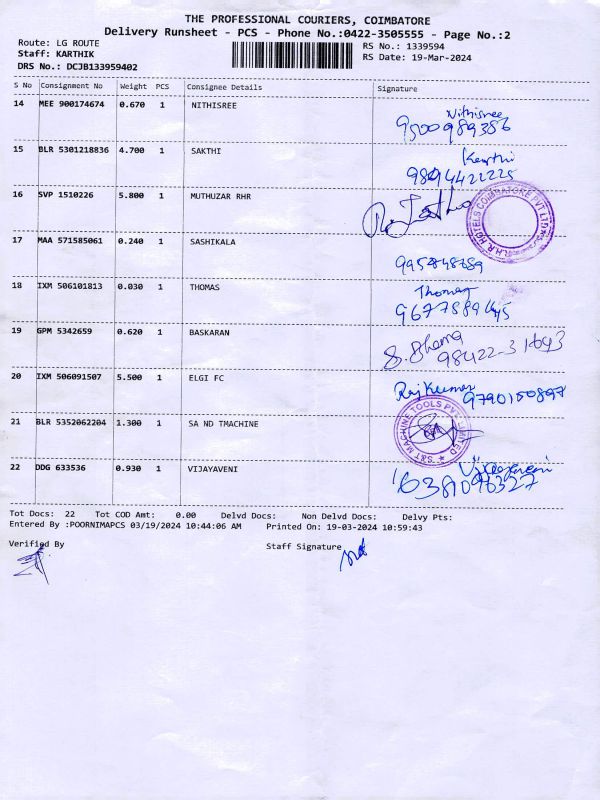 THE PROFESSIONAL COURIERS, COIMBATORE
Delivery Runsheet - PCS - Phone No.:0422-3505555 - Page No.:2
Route: LG ROUTE
RS No.: 1339594
Staff: KARTHIK
RS Date: 19-Mar-2024
DRS No.: DCJB133959402
S No Consignment No Weight PCS Consignee Details Signature
14 MEE 900174674 0.670 1 NITHISREE Nithisree
9500989386
15 BLR 5301218836 4.700 1 SAKTHI Karthi
9894422225
16 SVP 1510226 5.800 1 MUTHUZAR RHR
R.H.R HOTELS COIMBATORE PVT LTD
17 MAA 571585061 0.240 1 SASHIKALA
18 IXM 506101813 0.030 1 THOMAS Thomas
19 GPM 5342659 0.620 1 BASKARAN
98422-31643
20 IXM 506091507 5.500 1 ELGI FC Rajkumar
9790150897
21 BLR 5352062204 1.300 1 SA ND TMACHINE
S&T MACHINE TOOLS PVT LIMITED
22 DDG 633536 0.930 1 VIJAYAVENI
6381096327
Tot Docs: 22 Tot COD Amt: 0.00 Delvd Docs: Non Delvd Docs: Delvy Pts:
Entered By :POORNIMAPCS 03/19/2024 10:44:06 AM Printed On: 19-03-2024 10:59:43
Verified By Staff Signature